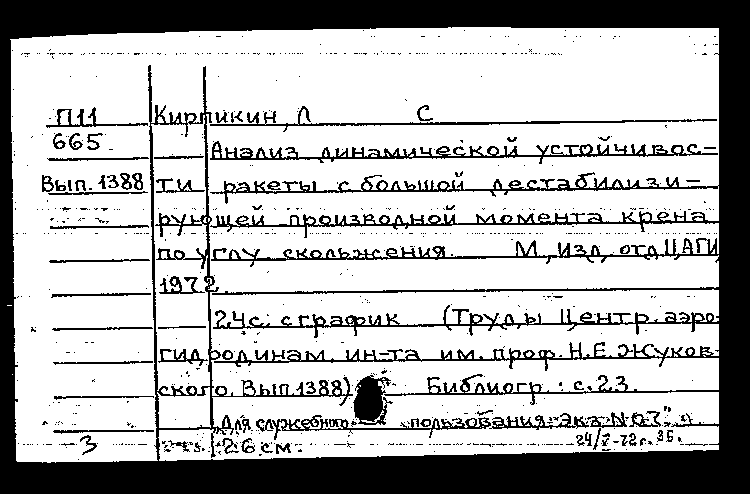 П11 Кирпикин, Л С
665
Анализ динамической устойчивос-
Вып. 1388 ти ракеты с большой дестабилизи-
рующей производной момента крена
по углу скольжения. М., изд. отд. ЦАГИ,
1972.
24с. с график (Труды Центр. аэро-
гидродинам. ин-та им. проф. Н.Е. Жуков-
ского. Вып. 1388) Библиогр.: с. 23.
„Для служебного пользования. Экз №
3 26 см.